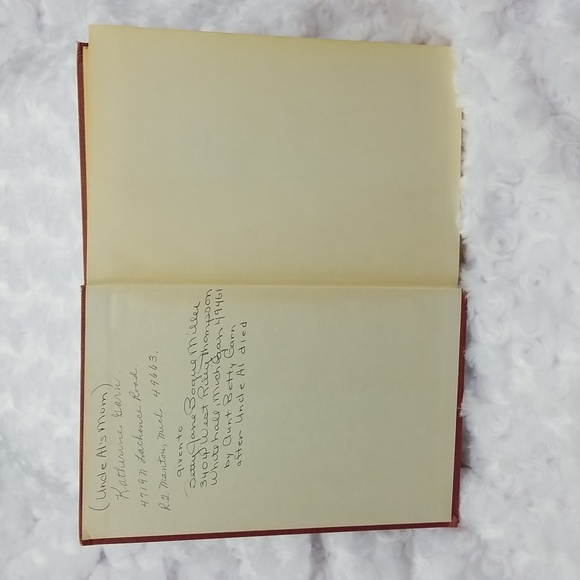 (Uncle Al's Mom)
Katherine Garn.
4719 N Lachonce Road
R2. Manton, Mich. 49663.
given to
Betty Jane Bogue Miller
3404 West Riley Thompson
Whitehall, Michigan 49461
by Aunt Betty Garn
after Uncle Al died